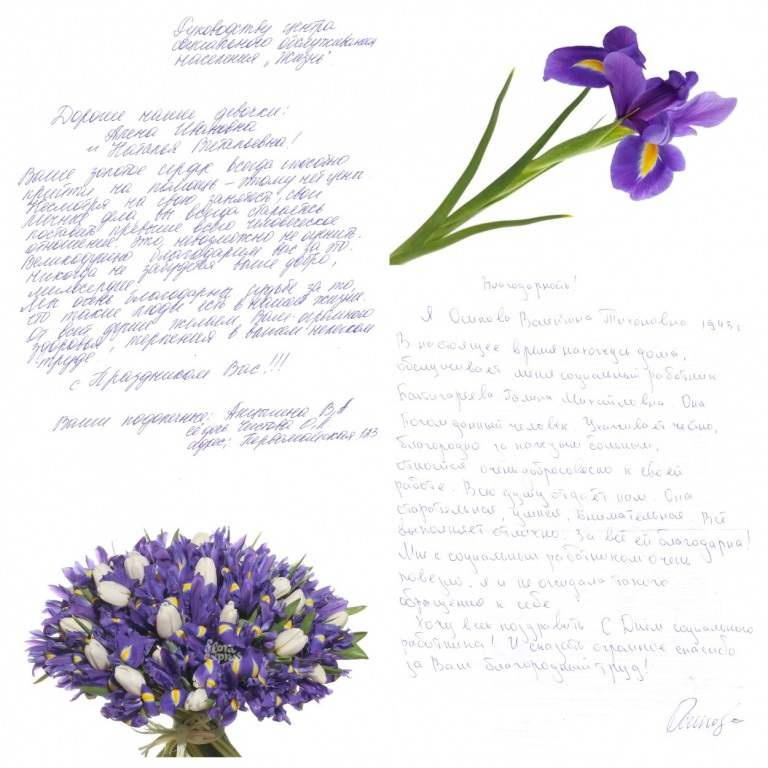 Руководству центра
социального обслуживания
населения "Жизнь".
Дорогие наши девочки:
Алёна Ивановна
и Наталья Витальевна!
Ваше золотое сердце всегда способно
прийти на помощь - этому нет цены.
Несмотря на свою занятость, свои
личные дела вы всегда стараетесь
поставить превыше всего человеческое
отношение. Это, невозможно не оценить.
Великодушно благодарим вас за это.
Никогда не забудется ваше добро,
милосердие!
Мы очень благодарны судьбе за то,
что такие люди есть в нашей жизни.
От всей души желаем, Вам огромного
здоровья, терпения в вашем нелегком
труде.
с Праздником Вас!!!
Ваши подопечные: Аникшина В.А
её дочь Чистова О.Л.
адрес: Первомайская 183
Благодарность!
Я Осипова Валентина Тихоновна 1943 г
В настоящее время нахожусь дома,
обслуживает меня социальный работник
Галина Михайловна. Она
Богом данный человек. Ухаживает честно,
благородно за каждым больным,
относится очень добросовесно к своей
работе. Всю душу отдаёт нам. Она
старательная, умная, внимательная. Всё
выполняет отлично. За всё ей благодарна!
Мне с социальным работником очень
повезло, я и не ожидала такого
обращения к себе.
Хочу всех поздравить С Днём социального
работника! И сказать огромное спасибо
за Ваш благородный труд!
flora
express